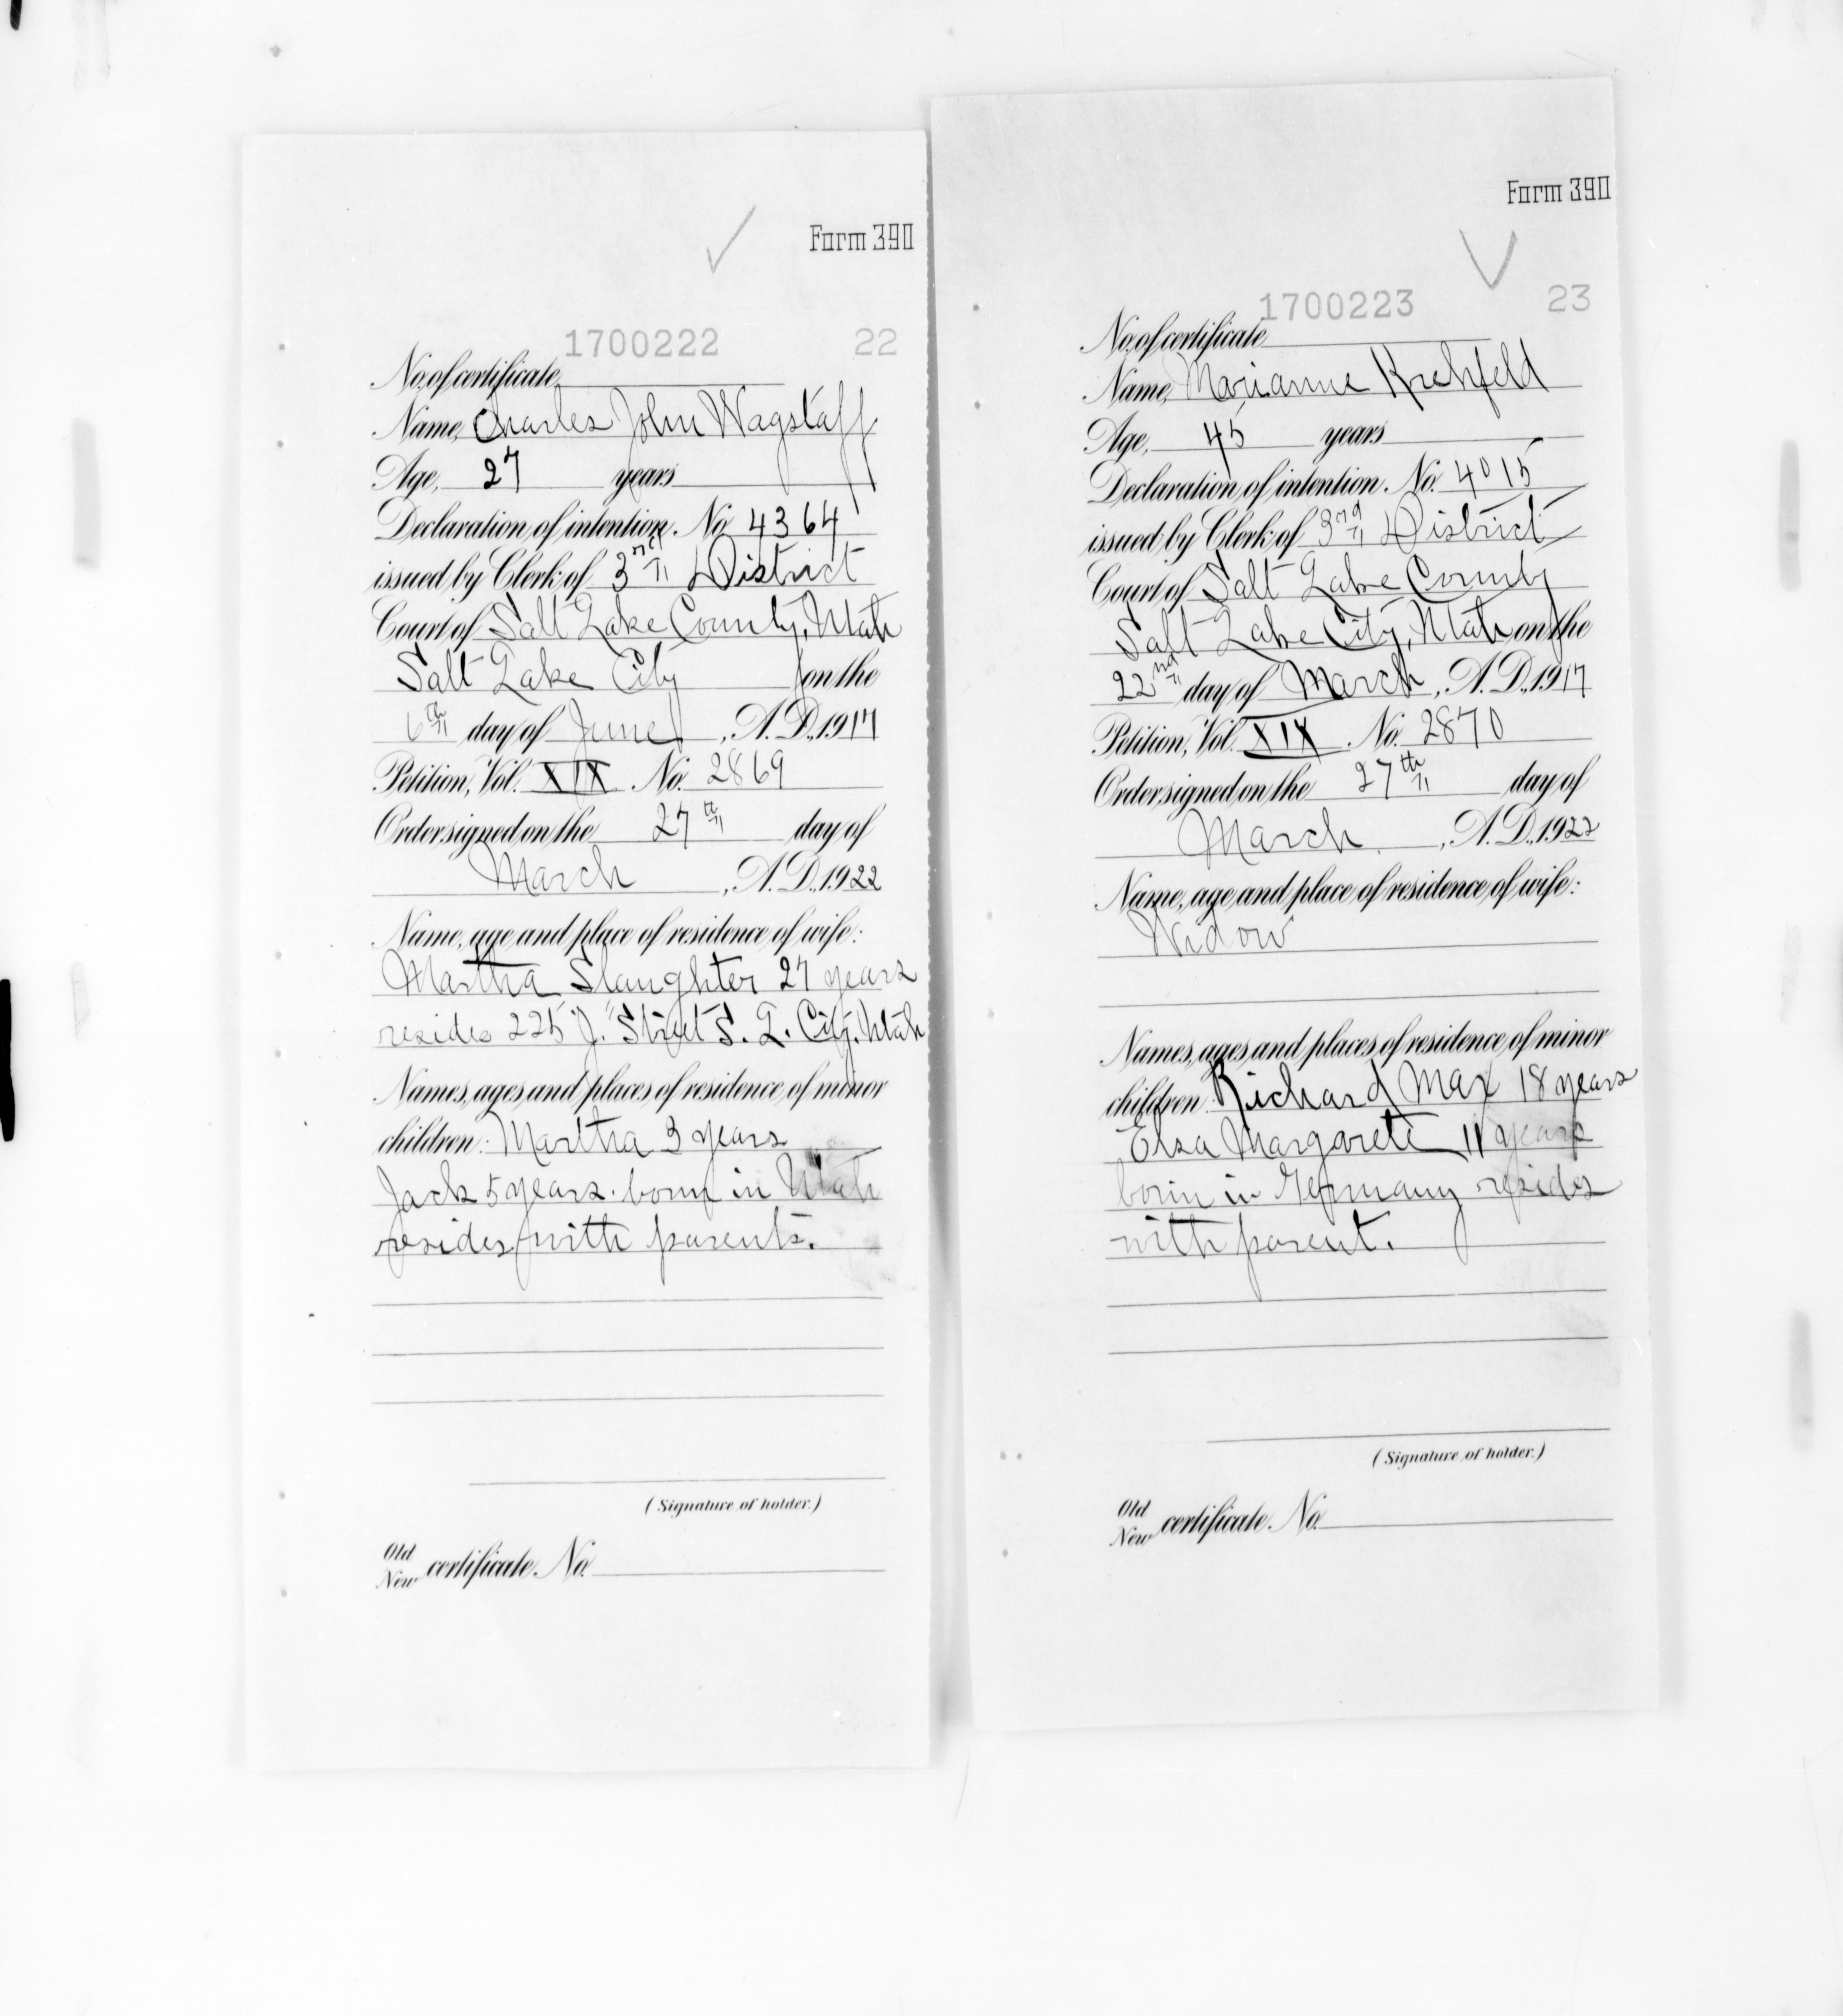 Form 390
1700222 22
No. of certificate
Name, Charles John Wagstaff
Age, 27 years
Declaration of intention No. 4364
issued by Clerk of 3rd District
Court of Salt Lake County, Utah
Salt Lake City on the
6th day of June, A.D. 1917
Petition, Vol. XIX No. 2869
Order signed on the 27th day of
March, A.D. 1922
Name, age and place of residence of wife:
Martha Slaughter 27 years
resides 225 "J." Street S. L. City, Utah
Names, ages and places of residence of minor
children: Martha 3 years
Jack 5 years. born in Utah
resides with parents.
(Signature of holder.)
Old
New certificate No.
Form 390
1700223 23
No. of certificate
Name, Marianne
Age, 45 years
Declaration of intention No. 4015
issued by Clerk of 3rd District
Court of Salt Lake County
Salt Lake City, Utah on the
22nd day of March, A.D. 1917
Petition, Vol. XIX No. 2870
Order signed on the 27th day of
March, A.D. 1922
Name, age and place of residence of wife:
Widow
Names, ages and places of residence of minor
children: Richard Max 18 years
Elsa Margarete 11 years
born in Germany resides
with parent.
(Signature of holder.)
Old
New certificate No.